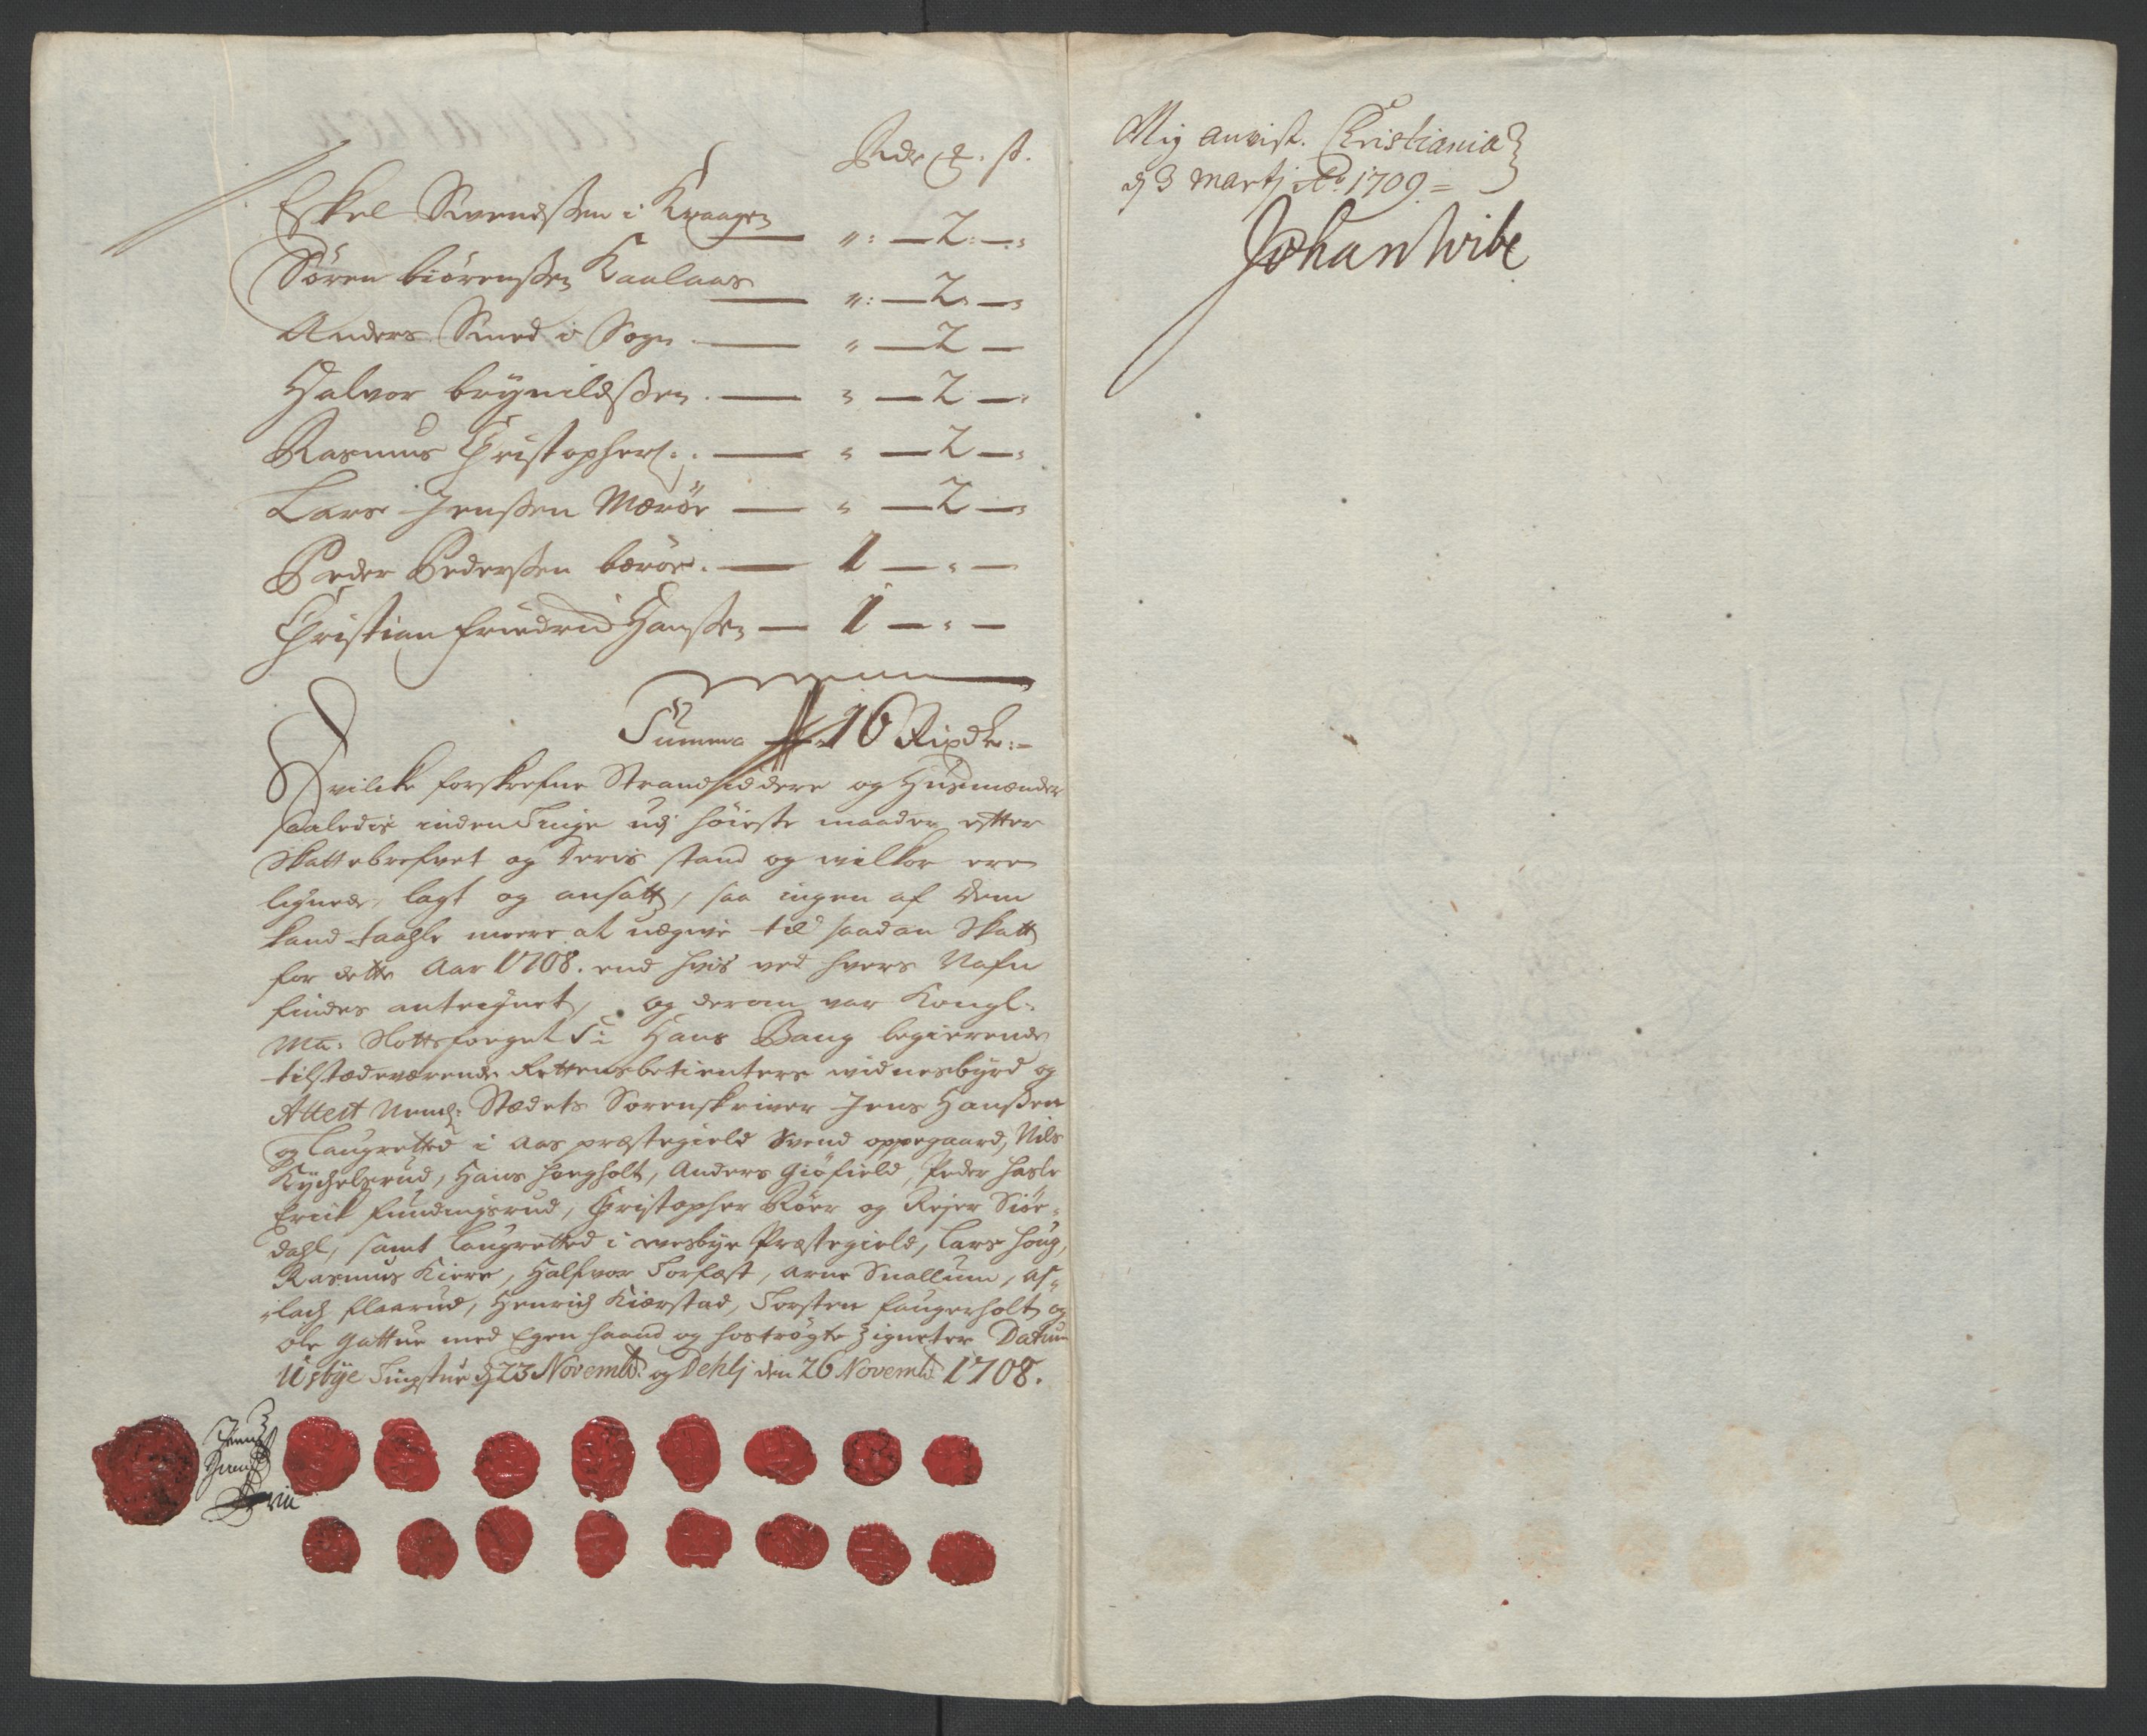 Rdr ꝶ. ß.
Eskel Svendßen i Kraagen — ": — 2: —:
Søren biörenßen Kaalaas — ": — 2: —:
Anders Smed i Sogn. — " — 2 —
Halvor brynildßen. — " — 2 —:
Rasmus Christophers: — " — 2 —:
Lars Jenßen Mæröe — " — 2 —:
Peder Pederßen bæröe. — 1 — " —
Christian Friedrich Hanßen — 1 — " —
Summa 16 Rixdr: —
Hvilcke forskrefne Strandsiddere og Husmænder
saaledis inden Tinge udj höieste maader efter
Skattebrefvet og deris stand og vilkor ere
lignede, lagt og ansatt, saa ingen af dem
kand taahle meere at udgive til saadan Skatt
for dette Aar 1708. end hvis ved hvers Nafn
findes antegnet, og derom var Kongl.
Ma: Slottsfoeget Sr Hans Bang begierende
tilstædeværende Rettens betienters vidnesbyrd og
Attest Neml: Stædets Sorenskriver Jens Hanßen
og Laugretted i Aas præstegield Svend oppegaard, Nils
Kychelsrud, Hans hougholt, Anders Giöfield, Peder hasle
Erich fundingsrud, Christopher Röer og Rejer Siöe-
dahl, samt Laugretted i vesbye Præstegield, Lars houg,
Rasmus Kiere, Halfvor Torfæst, Arne Snallum, As-
lach flaarud, Henrich Kiærstad, Torsten faugerholt og
Ole Gattue med Egen haand og hoströgte Zigneter Datum
Usbye Tingstue d 23 Novembr: og Dehlj den 26 Novembr 1708.
Mig anvist. Christiania
d 3 Martj Ao 1709 =
Johan Wibe